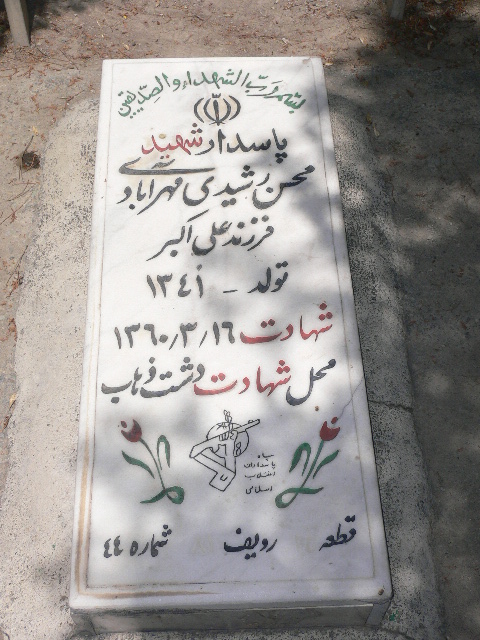 بسم رب الشهداء والصدیقین
پاسدار شهید
محسن رشیدی مهرآبادی
فرزند علی اکبر
تولد - ۱۳٤۱
شهادت ۱۳٦۰٫۳٫۱٦
محل شهادت دشت ذهاب
سپاه
پاسداران
انقلاب
اسلامی
قطعه ردیف شماره ٤٤